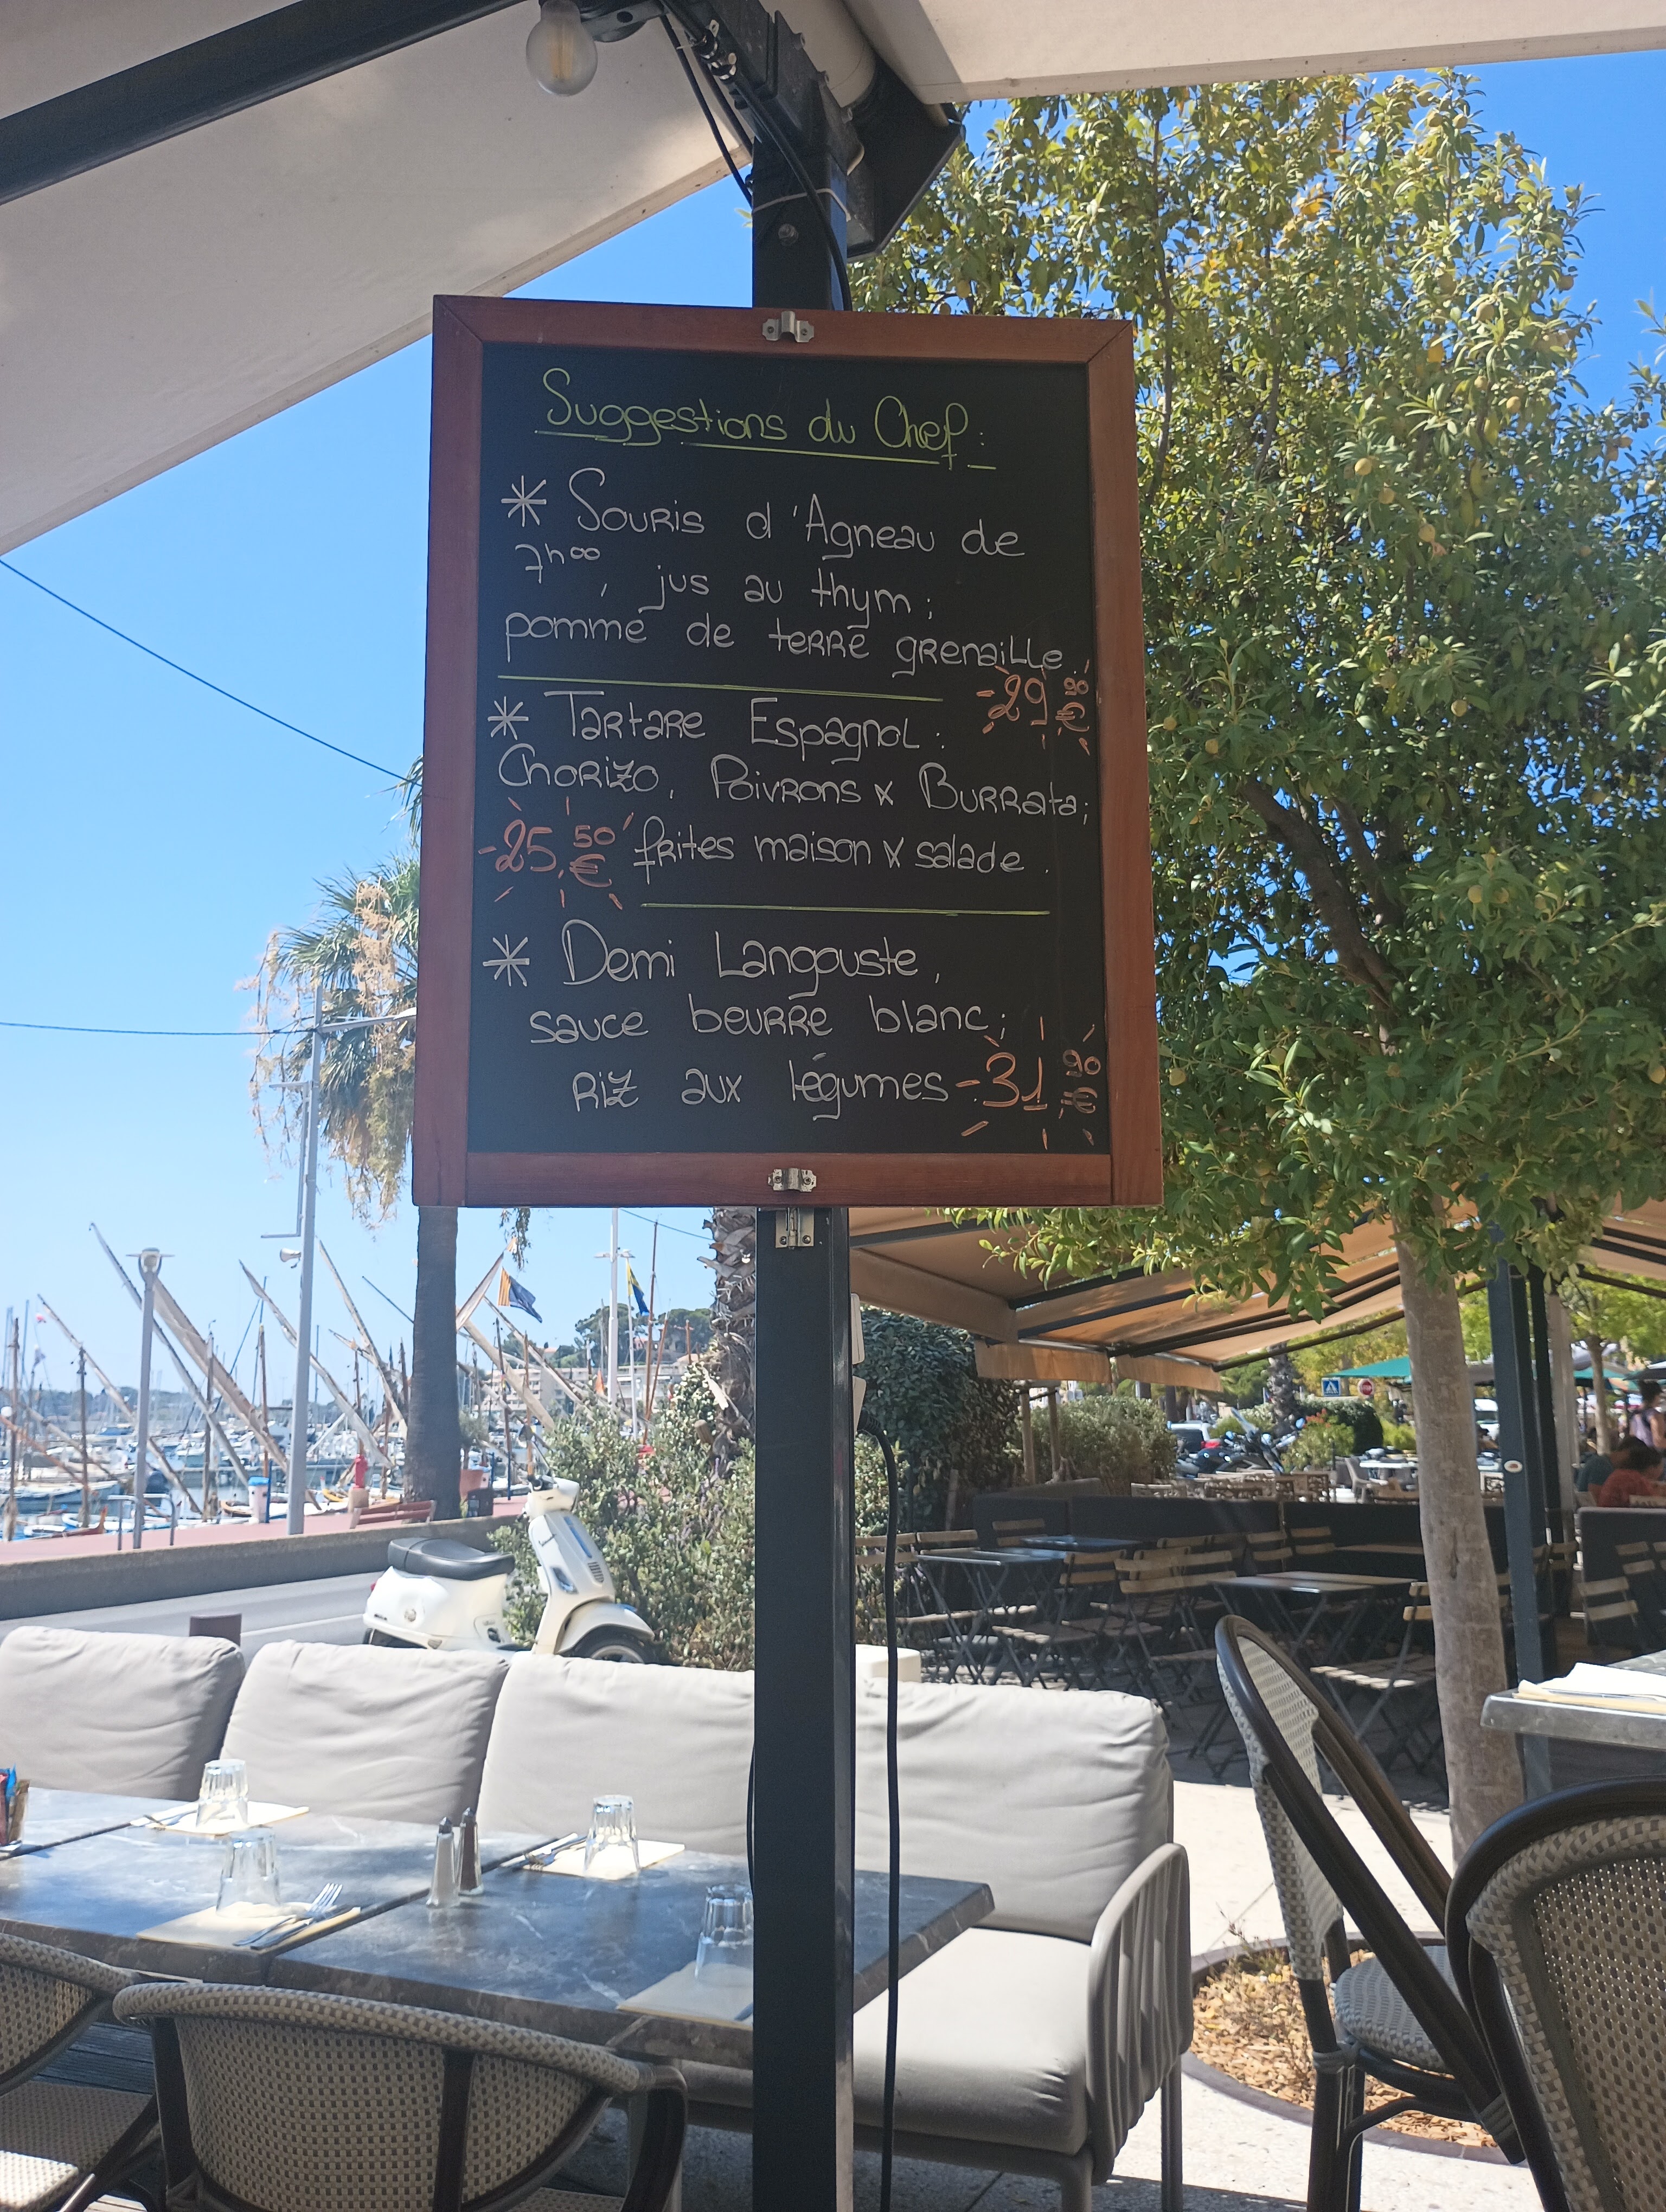 Suggestions du Chef :
* Souris d'Agneau de
7h00, jus au thym ;
pomme de terre grenaille.
-29,90 €
* Tartare Espagnol :
Chorizo, Poivrons x Burrata ;
-25,50 € frites maison x salade.
* Demi Langouste,
sauce beurre blanc ;
riz aux légumes -31,90 €